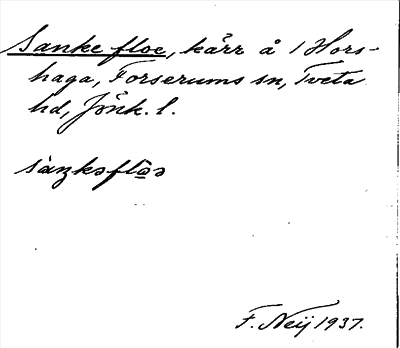 Sanke floe, kärr å 1 Hors-
haga, Forserums sn, Tveta
hd, Jönk. l.
F. Neij 1937.